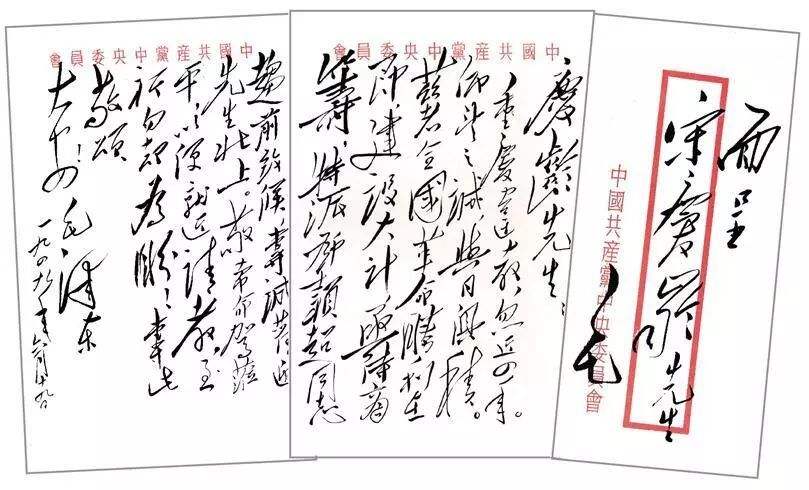 面呈
宋慶齡先生
毛
中國共産黨中央委員會
中國共産黨中央委員會
慶齡先生：
重慶違教，忽近四年。
仰望之誠，與日俱積。
兹者全國革命勝利在
即，建設大計，亟待商
籌，特派鄧穎超同志
中國共産黨中央委員會
趨前致候，專誠歡迎
先生北上。敬希命駕蒞
平，以便就近請教，至
祈勿却為盼！專此
敬頌
大安！毛澤東
一九四九年六月十九日